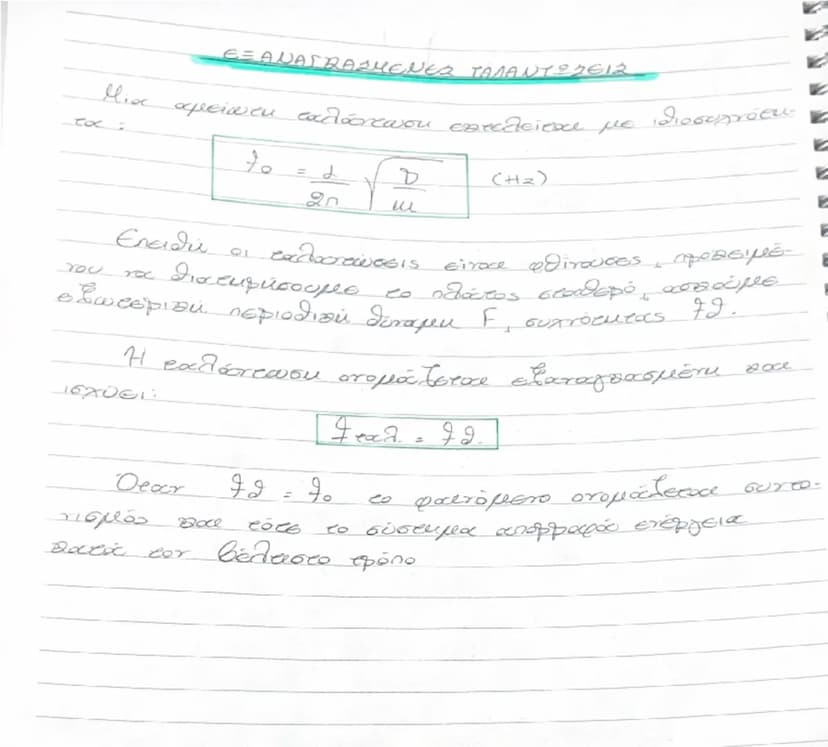 ΕΞΑΝΑΓΚΑΣΜΕΝΕΣ ΤΑΛΑΝΤΩΣΕΙΣ
Μια αμείωτη ταλάντωση επιτελείται με ιδιοσυχνότη-
τα:
f₀ = 1/2π √(D/m) (Hz)
Επειδή οι ταλαντώσεις είναι φθίνουσες, προκειμέ-
νου να διατηρήσουμε το πλάτος σταθερό, ασκούμε
εξωτερική περιοδική δύναμη F, συχνότητας fδ.
Η ταλάντωση ονομάζεται εξαναγκασμένη και
ισχύει:
fταλ. = fδ.
Όταν fδ = f₀ το φαινόμενο ονομάζεται συντο-
νισμός και τότε το σύστημα απορροφάς ενέργεια
κατά τον βέλτιστο τρόπο